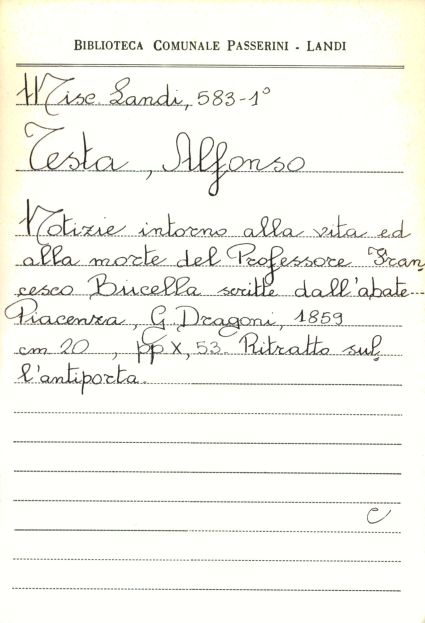 BIBLIOTECA COMUNALE PASSERINI - LANDI
Misc. Landi, 583-1°
Testa, Alfonso
Notizie intorno alla vita ed
alla morte del Professore Fran
cesco Bucella scritte dall'abate
Piacenza, G. Dragoni, 1859
cm 20, pp X, 53. Ritratto sul
l'antiporta.
C